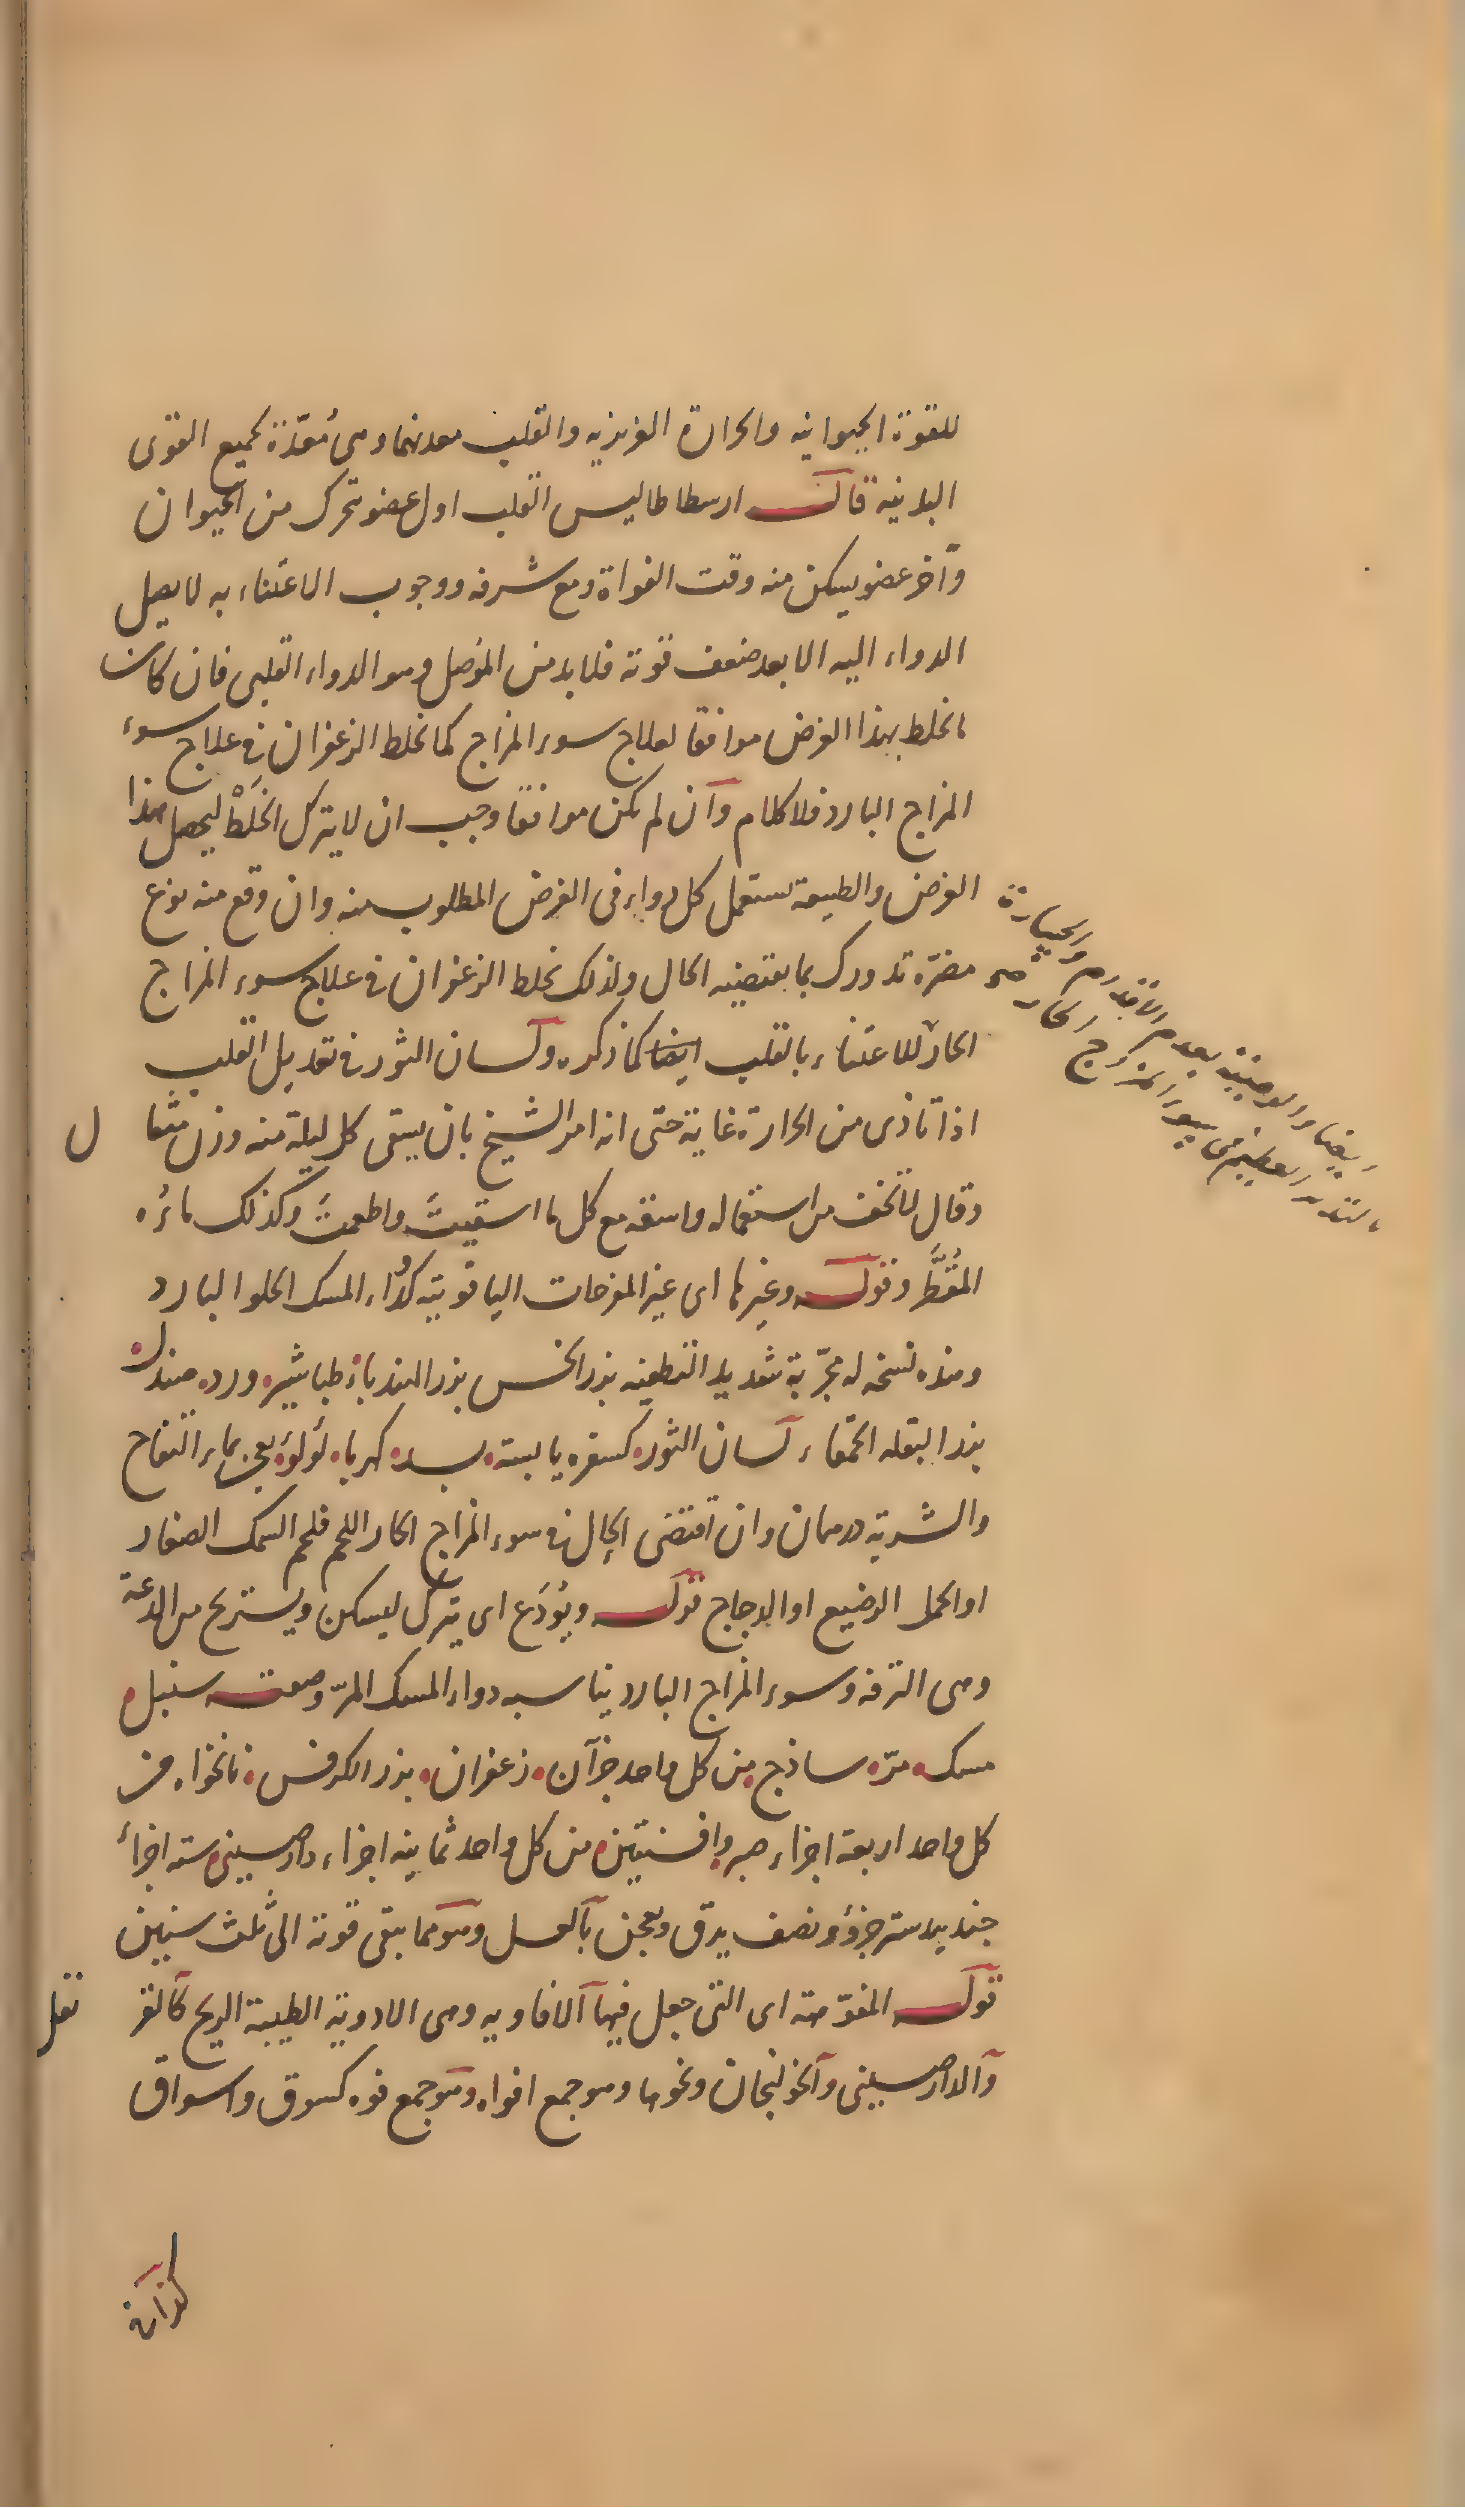 للقوة الحيوانيه والحرارة الغريزيه والقلب معدنهما وهى مُعدّة لجميع القوى
البدنيه قال ارسطاطاليس القلب اول عضو تحرك من الحيوان
وآخر عضو يسكن منه وقت الفواة ومع شرفه ووجوب الاعتناء به لا يصل
الدواء اليه الا بعد ضعف قوته فلا بد من الموُصل وهو الدواء القلبى فان كانت
ما نخلط بهذا الغرض موافقا لعلاج سوء المزاج كما نخلط الزعفران فى علاج سوء
المزاج البارد فلا كلام وآن لم يكن موافقًا وجب ان لا يترك الخَلْط ليحصل هذا
الغرض والطبيعة تستعمل كل دواء فى الغرض المطلوب منه وان وقع منه نوع
مضرّه تدورك بما يقتضيه الحال ولذلك نخلط الزعفران فى علاج سوء المزاج
الحارّ للاعتناء بالقلب ايضا كما ذكره ولسان الثور فى تعديل القلب
اذا تاذى من الحارة غاية حتى انه امر الشيخ بان يسقى كل ليلة منه وزن مثقا
ل
وقال لا تخف من استعماله واسقه مع كل ما اسقيتَ واطعمتَ وكذلك ماؤه
المُقَطَّر وقوله وغيرها اى غير المفرحات الياقوتية كدواء المسك الحلو البارد
وهذه نسخه له مجرّبة شديد التطفيه بزر الخس بزر الهندباء طباشير ورد صندل
بزر البقله الحمقاء لسان الثور كسفره يابسة بسد كهربا لؤلؤ يعجن بماء التفاح
والشربة درهمان وان اقتضى الحال فى سوء المزاج الحار اللحم فلحم السمك الصغار
او الحمل الرضيع او الدجاج قوله ويُودَع اى يترك ليسكن ويستريح من الدعة
وهى الترفه وسوء المزاج البارد يناسبه دواء المسك المرّ وصفته سنبل
مسك مرّ ساذج من كل واحد جزآن زعفران بزر الكرفس نانخواه من
كل واحد اربعة اجزاء صبر افسنتين من كل واحد ثمانيه اجزاء دارصينى سته اجزأ
جندبيدستر جزؤ ونصف يدق ويعجن بالعسل وهو مما يبقى قوته الى ثلث سنين
قوله المفوّهة اى التى جعل فيها الافاويه وهى الادوية الطيبة الريح كالقر
نفل
والدارصينى والخولنجان ونحوها وهو جمع افواه وهو جمع فوه كسوق واسواق